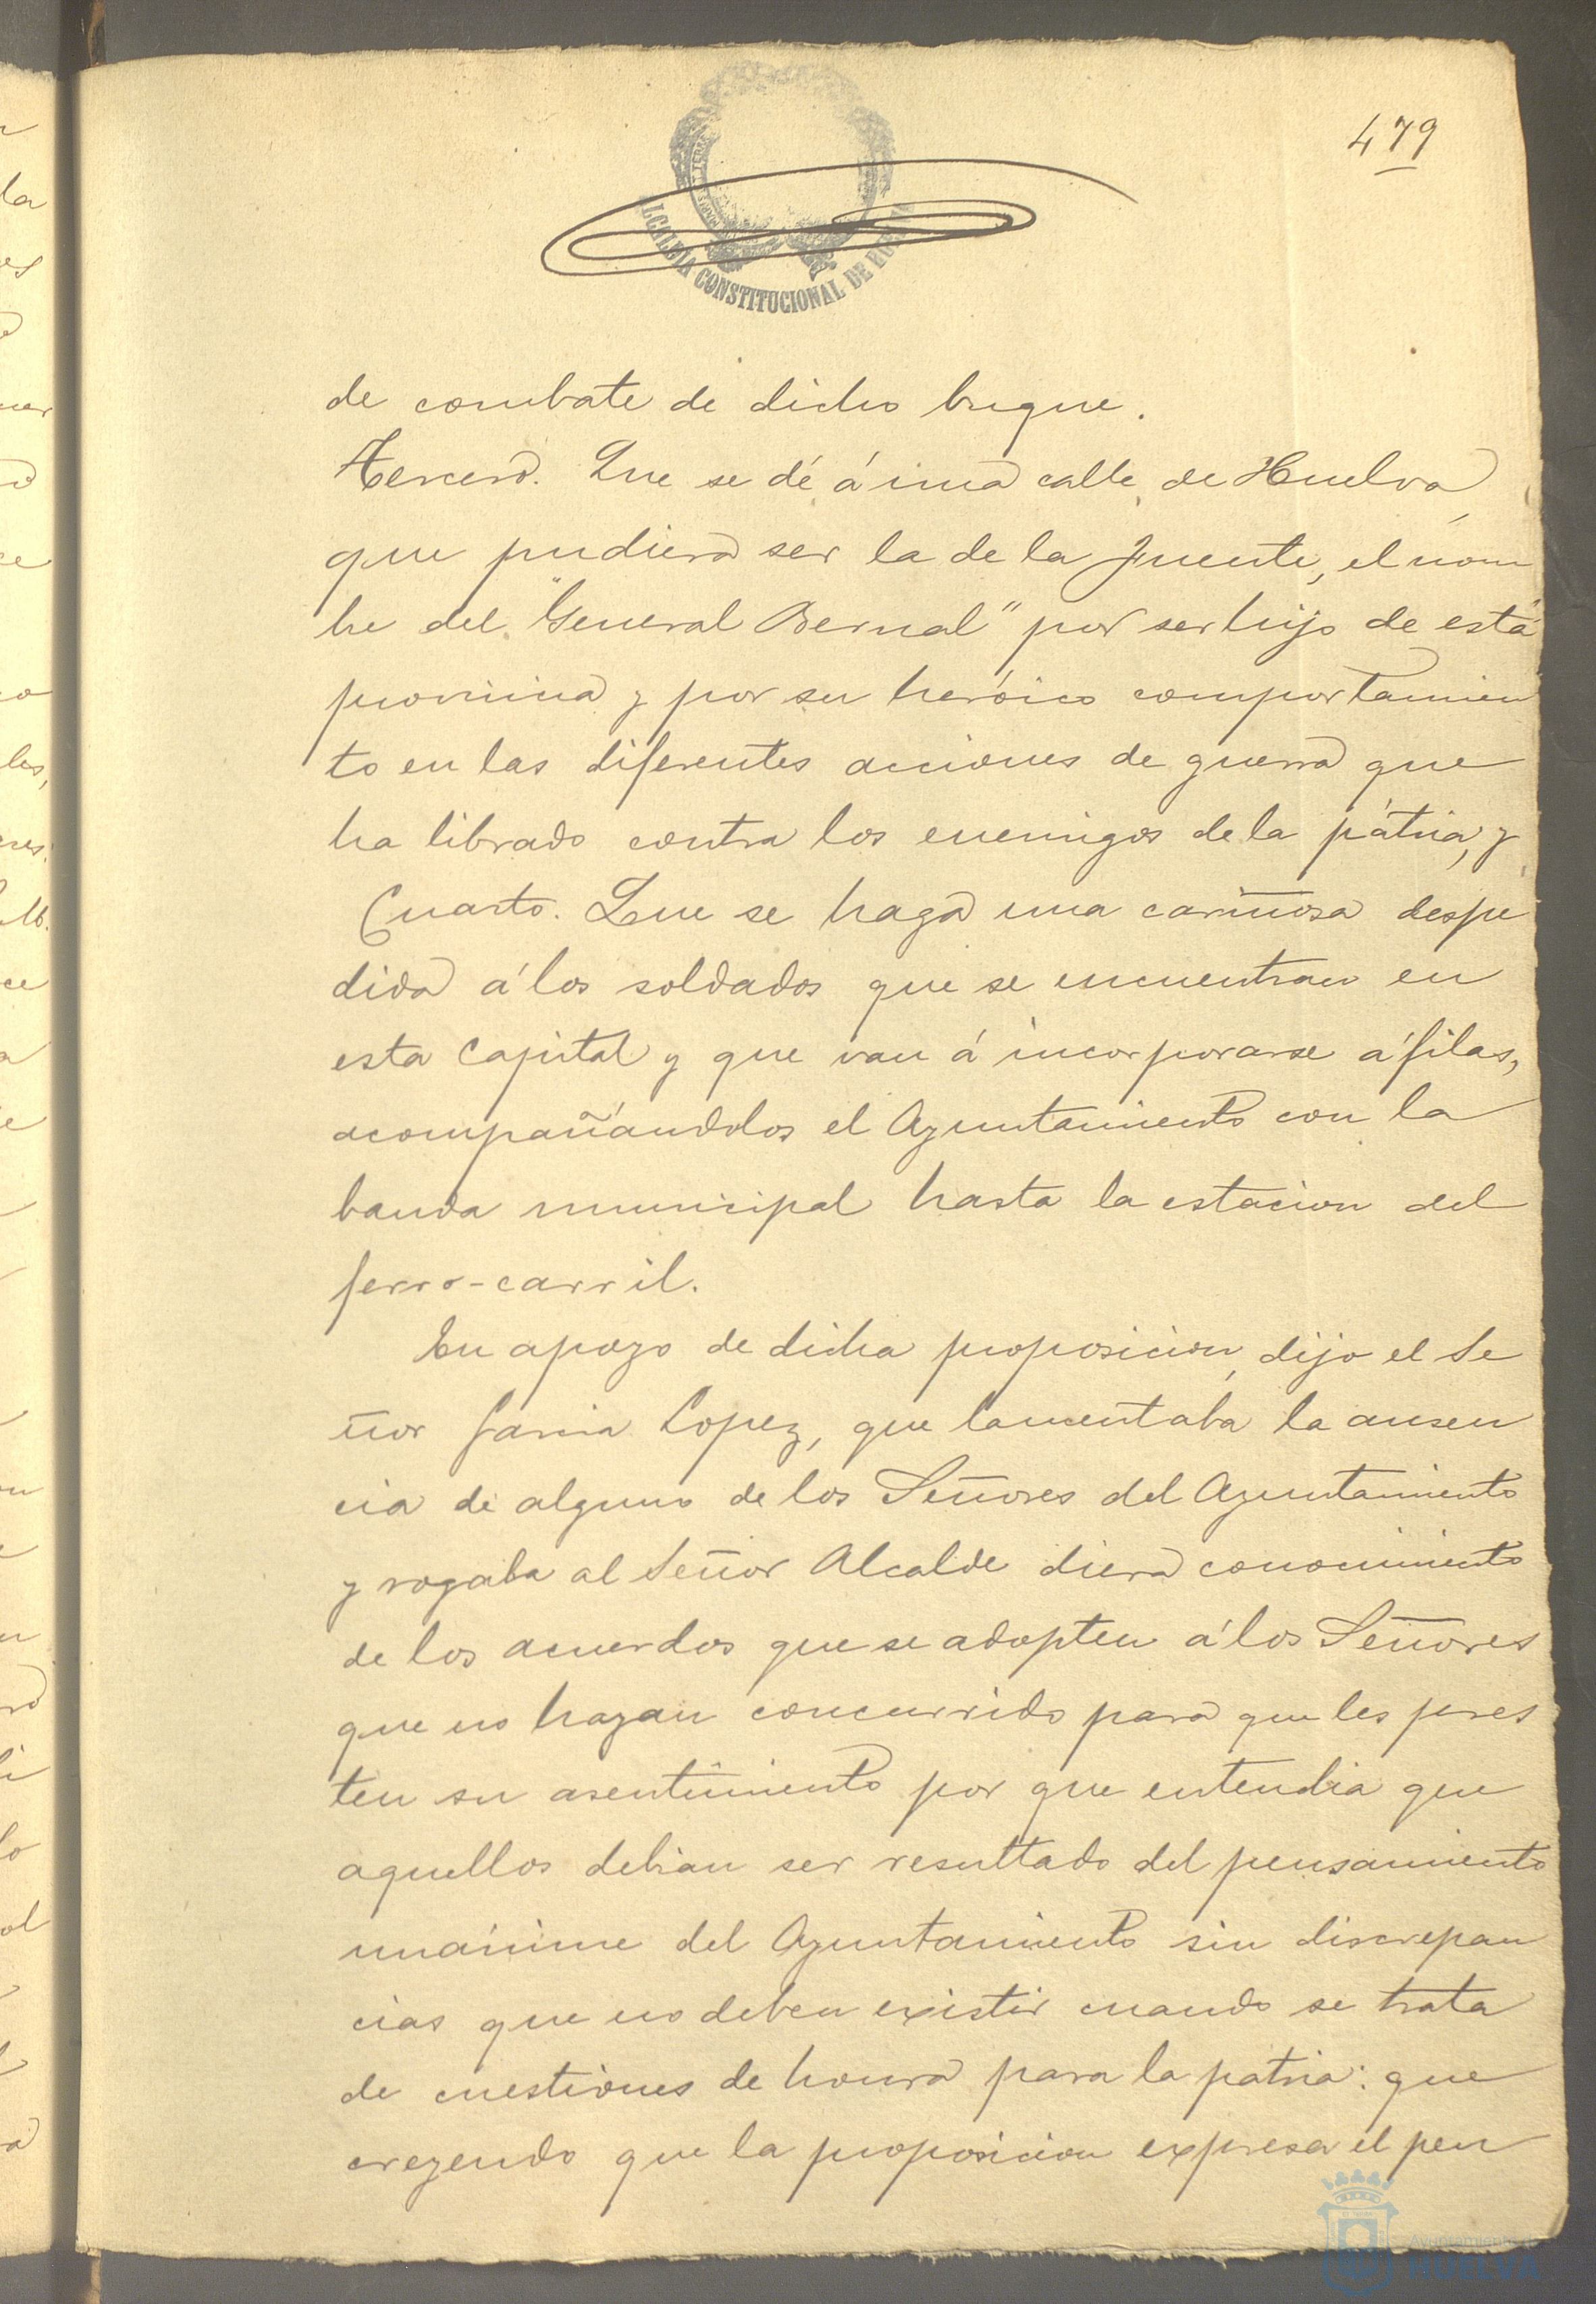 479
ALCALDIA CONSTITUCIONAL DE HUELVA
de combate de dicho buque.
Tercero. Que se dé á una calle de Huelva,
que pudiera ser la de la Fuente, el nom
bre del "General Bernal" por ser hijo de esta
provincia y por su heróico comportamien
to en las diferentes acciones de guerra que
ha librado contra los enemigos de la pátria, y
Cuarto. Que se haga una cariñosa despe
dida á los soldados que se encuentran en
esta Capital y que van á incorporarse á filas,
acompañándolos el Ayuntamiento con la
banda municipal hasta la estacion del
ferro-carril.
En apoyo de dicha proposicion, dijo el Se
ñor Garcia Lopez, que lamentaba la ausen
cia de alguno de los Señores del Ayuntamiento
y rogaba al Señor Alcalde diera conocimiento
de los acuerdos que se adopten á los Señores
que no hayan concurrido para que les pres
ten su asentimiento por que entendia que
aquellos debian ser resultado del pensamiento
unánime del Ayuntamiento sin discrepan
cias que no deben existir cuando se trata
de cuestiones de honra para la patria: que
creyendo que la proposicion expresa el pen
Ayuntamiento
HUELVA